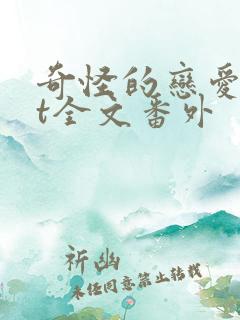 奇怪的戀愛
t全文番外
祈幽
未经同意禁止转载